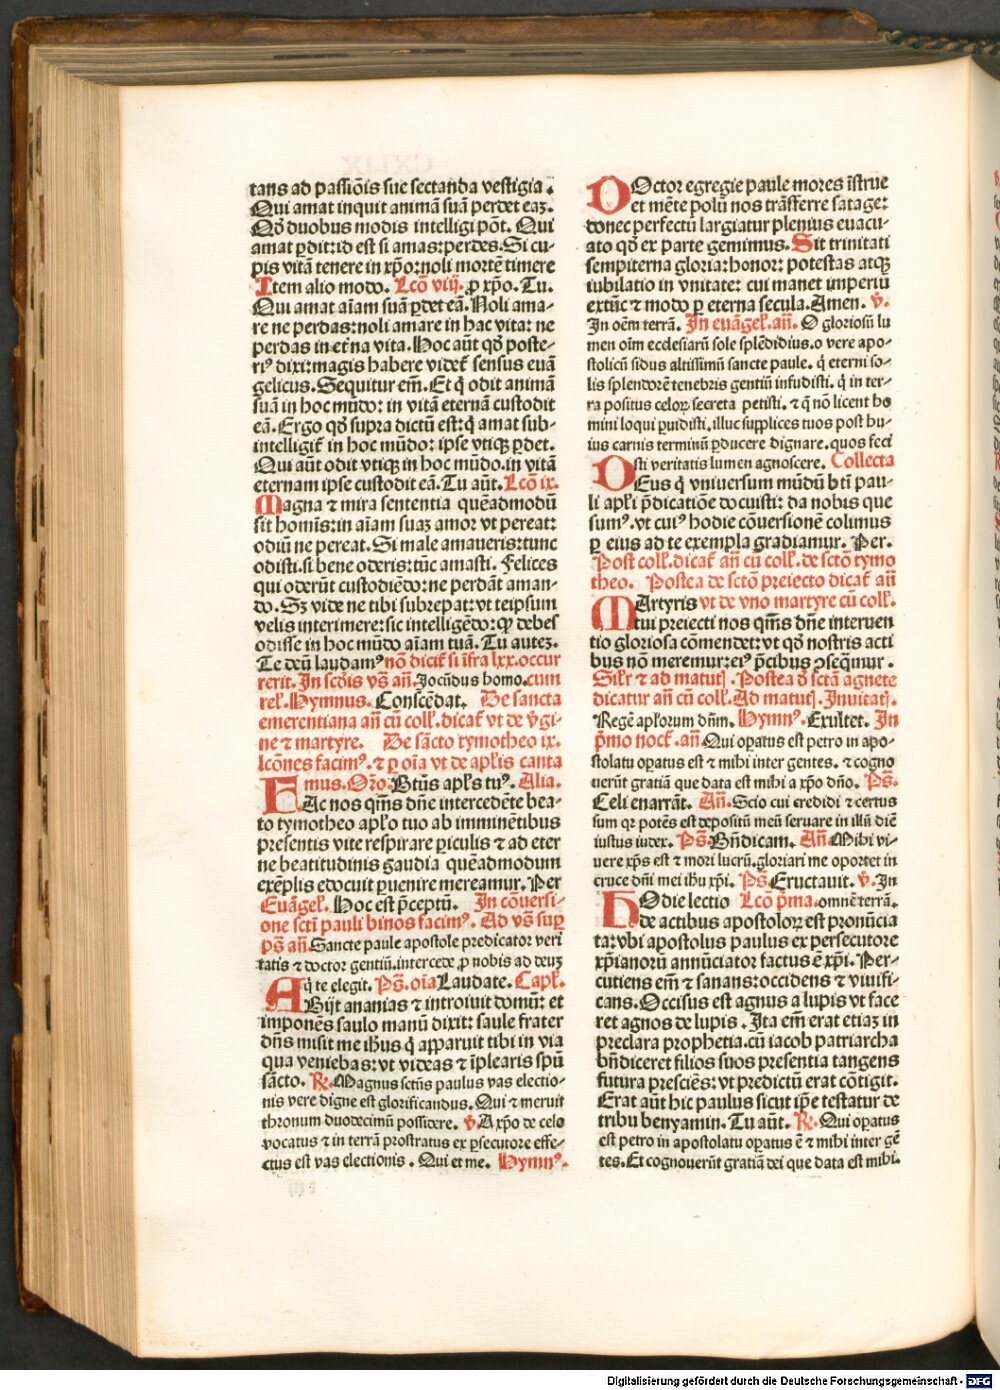 tans ad passiõis sue sectanda vestigia.
Qui amat inquit animã suã perdet eaz.
Qď duobus modis intelligi põt. Qui
amat ꝑdit: id est si amas: perdes. Si cu-
pis vitã tenere in xp̃o: noli mortẽ timere
Item alio modo. Lcõ viij. ꝓ xp̃o. Tu.
Qui amat aĩam suã ꝑdet eã. Noli ama-
re ne perdas: noli amare in hac vita: ne
perdas in et̃na vita. Hoc aũt qď poste-
riꝰ dixi: magis habere videt̃ sensus euã
gelicus. Sequitur em̃. Et q̃ odit animã
suã in hoc mũdo: in vitã eternã custodit
eã. Ergo qď supra dictũ est: q̃ amat sub-
intelligit̃ in hoc mũdo: ipse vtiqꝫ ꝑdet.
Qui aũt odit vtiqꝫ in hoc mũdo. in vitã
eternam ipse custodit eã. Tu aũt. Lcõ ix.
Magna ⁊ mira sententia quẽadmodũ
sit homĩs: in aĩam suaz amor vt pereat:
odiũ ne pereat. Si male amaueris: tunc
odisti. si bene oderis: tũc amasti. Felices
qui oderũt custodiẽdo: ne perdãt aman-
do. Sꝫ vide ne tibi subrepat: vt teipsum
velis interimere: sic intelligẽdo: qꝫ debes
odisse in hoc mũdo aĩam tuã. Tu autez.
Te deũ laudamꝰ nõ dicit̃ si ĩfra lxx. occur
rerit. In scďis vs̃ añ. Jocũdus homo. cum
rel̃. Hymnus. Conscẽdat. De sancta
emerentiana añ cũ coll̃. dicat̃ vt de v̓gi-
ne ⁊ martyre. De sãcto tymotheo ix.
lcões facimꝰ. ⁊ ꝑ oĩa vt de apl̃is canta
mus. Or̃o. Btũs apl̃s tuꝰ. Alia.
FAc nos qm̃s dñe intercedẽte bea-
to tymotheo apl̃o tuo ab imminẽtibus
presentis vite respirare ꝑiculis ⁊ ad eter
ne beatitudinis gaudia quẽadmodum
exẽplis edocuit ꝑuenire mereamur. Per
Euãgel̃. Hoc est p̃ceptũ. In cõuersi-
one scti pauli binos facimꝰ. Ad vs̃ suꝑ
pš añ. Sancte paule apostole predicator veri
tatis ⁊ doctor gentiũ. intercede ꝓ nobis ad deuz
q̃ te elegit. Pš. oĩa Laudate. Capl̃.
ABijt ananias ⁊ introiuit domũ: et
imponẽs saulo manũ dixit: saule frater
dñs misit me ihũs q̃ apparuit tibi in via
qua veniebas: vt videas ⁊ ĩplearis spũ
sãcto. R̃. Magnus sctũs paulus vas electio-
nis vere digne est glorificandus. Qui ⁊ meruit
thronum duodecimũ possidere. v̓. A xp̃o de celo
vocatus ⁊ in terrã prostratus ex ꝑsecutore effe-
ctus est vas electionis. Qui et me. Hymnꝰ.
DOctor egregie paule mores ĩstrue
et mẽte polũ nos trãsferre satage:
donec perfectũ largiatur plenius euacu-
ato qď ex parte gerimus. Sit trinitati
sempiterna gloria: honor: potestas atqꝫ
iubilatio in vnitate: cui manet imperiũ
extũc ⁊ modo ꝑ eterna secula. Amen. v̓.
In oẽm terrã. In euãgel̃. añ. O gloriosũ lu
men oĩm ecclesiarũ sole splẽdidius. o vere apo-
stolicũ sidus altissimũ sancte paule. q̃ eterni so-
lis splendorẽ tenebris gentiũ infudisti. q̃ in ter-
ra positus celoꝝ secreta petisti. ⁊ q̃ nõ licent ho
mini loqui ꝑuidisti. illuc supplices tuos post hu-
ius carnis terminũ ꝑducere dignare. quos feci
sti veritatis lumen agnoscere. Collecta
DEus q̃ vniuersum mũdũ bt̃i pau-
li apl̃i p̃dicatiõe docuisti: da nobis que
sumꝰ. vt cuiꝰ hodie cõuersionẽ colimus
ꝑ eius ad te exempla gradiamur. Per.
Post coll̃. dicat̃ añ cũ coll̃. de sctõ tymo
theo. Postea de sctõ preiecto dicat̃ añ
MArtyris vt de vno martyre cũ coll̃.
tui preiecti nos qm̃s dñe interuen
tio gloriosa cõmendet: vt qď nostris acti
bus nõ meremur: eiꝰ p̃cibus ↄseq̃mur.
Sil̃r ⁊ ad matut̃. Postea ď sctã agnete
dicatur añ cũ coll̃. Ad matut̃. Inuitat̃.
Regẽ apl̃orum dñm. Hymnꝰ. Exultet. In
p̃mo noct̃. añ. Qui oꝑatus est petro in apo-
stolatu oꝑatus est ⁊ mihi inter gentes. ⁊ cogno
uerũt gratiã que data est mihi a xp̃o dño. Pš.
Celi enarrãt. Añ. Scio cui credidi ⁊ certus
sum qꝛ potẽs est depositũ meũ seruare in illũ diẽ
iustus iudex. Pš. Bñdicam. Añ. Mihi vi-
uere xp̃s est ⁊ mori lucrũ. gloriari me oportet in
cruce dñi mei ihũ xp̃i. Pš. Eructauit. v̓. In
HOdie lectio Lcõ p̃ma. omnẽ terrã.
de actibus apostoloꝝ est pronũcia
ta: vbi apostolus paulus ex persecutore
xp̃ianorũ annũciator factus ẽ xp̃i. Per-
cutiens em̃ ⁊ sanans: occidens ⁊ viuifi-
cans. Occisus est agnus a lupis vt face
ret agnos de lupis. Ita em̃ erat etiaz in
preclara prophetia. cũ iacob patriarcha
bñdiceret filios suos presentia tangens
futura presciẽs: vt predictũ erat cõtigit.
Erat aũt hic paulus sicut ip̃e testatur de
tribu benyamin. Tu aũt. R̃. Qui oꝑatus
est petro in apostolatu oꝑatus ẽ ⁊ mihi inter gẽ
tes. Et cognouerũt gratiã dei que data est mihi.
Digitalisierung gefördert durch die Deutsche Forschungsgemeinschaft - DFG